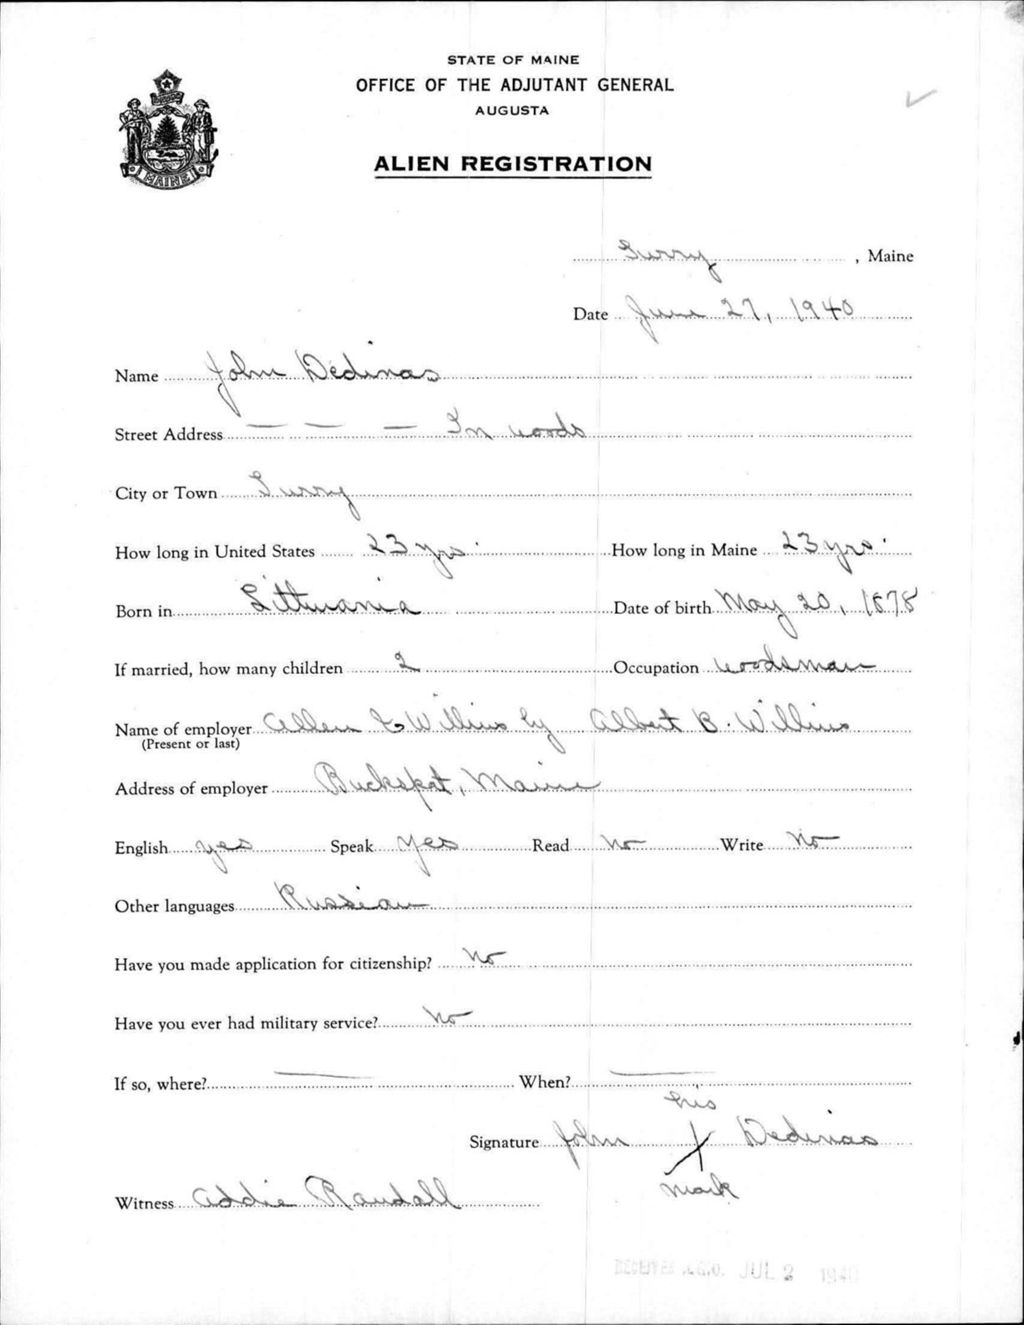 STATE OF MAINE
OFFICE OF THE ADJUTANT GENERAL
AUGUSTA
ALIEN REGISTRATION
MAINE
Surry, Maine
Date June 27, 1940
Name John Dedinas
Street Address — — — In woods
City or Town Surry
How long in United States 23 yrs. How long in Maine 23 yrs.
Born in Lithuania Date of birth May 20, 1878
If married, how many children 2 Occupation woodsman
Name of employer Allen & Willins by Albert B. Willins
(Present or last)
Address of employer Bucksport, Maine
English yes Speak yes Read No Write No
Other languages Russian
Have you made application for citizenship? No
Have you ever had military service? No
If so, where? — When? —
his
Signature John X Dedinas
mark
Witness Addie Randall
RECEIVED A.G.O. JUL 2 1940